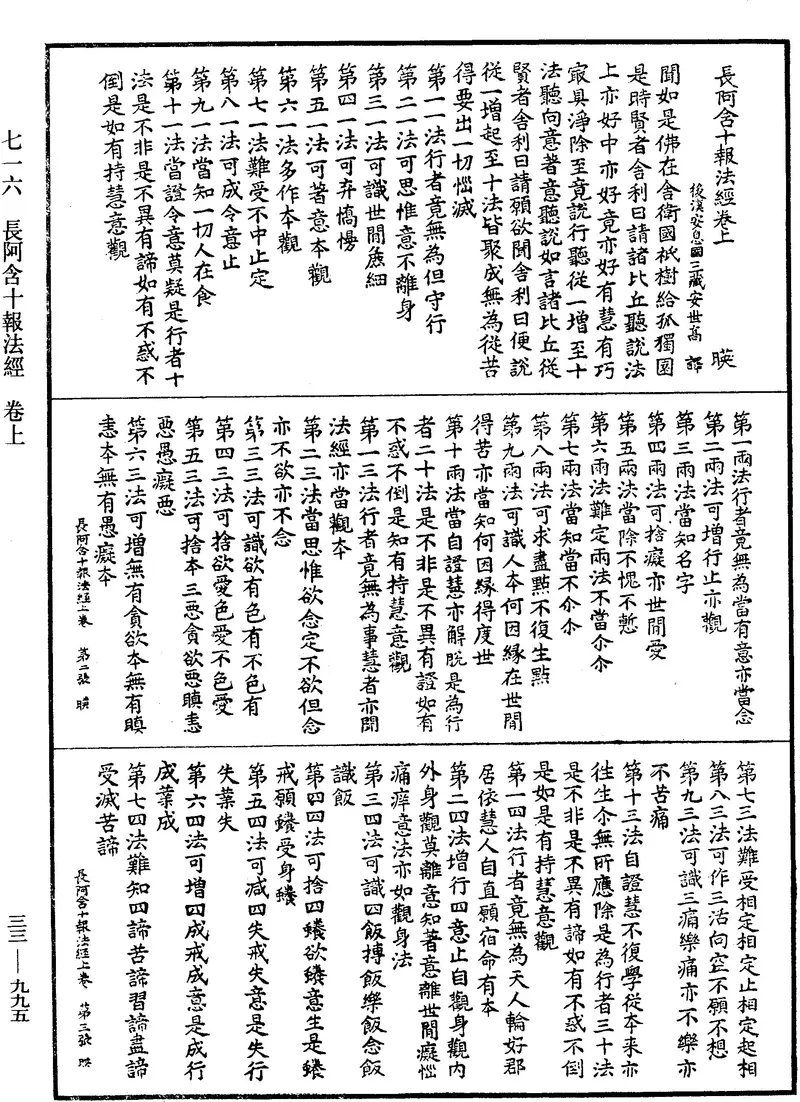 長阿含十報法經卷上 暎
後漢安息國三藏安世高 譯
聞如是佛在舍衛國祇樹給孤獨園
是時賢者舍利曰請諸比丘聽說法
上亦好中亦好竟亦好有慧有巧
㝡具淨除至竟說行聽從一增至十
法聽向意著意聽說如言諸比丘從
賢者舍利曰請願欲聞舍利曰便說
從一增起至十法皆聚成無為從苦
得要出一切惱滅
第一一法行者竟無為但守行
第二一法可思惟意不離身
第三一法可識世間麁細
第四一法可弃憍慢
第五一法可著意本觀
第六一法多作本觀
第七一法難受不中止定
第八一法可成令意止
第九一法當知一切人在食
第十一法當證令意莫疑是行者十
法是不非是不異有諦如有不惑不
倒是如有持慧意觀
第一兩法行者竟無為當有意亦當念
第二兩法可增行止亦觀
第三兩法當知名字
第四兩法可捨癡亦世間愛
第五兩法當除不愧不慙
第六兩法難定兩法不當尒尒
第七兩法當知當不尒尒
第八兩法可求盡點不復生點
第九兩法可識人本何因緣在世間
得苦亦當知何因緣得度世
第十兩法當自證慧亦解脫是為行
者二十法是不非是不異有證如有
不惑不倒是知有持慧意觀
第一三法行者竟無為事慧者亦聞
法經亦當觀本
第二三法當思惟欲念定不欲但念
亦不欲亦不念
第三三法可識欲有色有不色有
第四三法可捨欲愛色愛不色愛
第五三法可捨本三惡貪欲惡瞋恚
惡愚癡惡
第六三法可增無有貪欲本無有瞋
恚本無有愚癡本
長阿含十報法經上卷 第二張 暎
第七三法難受相定相定止相定起相
第八三法可作三活向空不願不想
第九三法可識三痛樂痛亦不樂亦
不苦痛
第十三法自證慧不復學從本來亦
往生尒無所應除是為行者三十法
是不非是不異有諦如有不惑不倒
是如是有持慧意觀
第一四法行者竟無為天人輪好郡
居依慧人自直願宿命有本
第二四法增行四意止自觀身觀內
外身觀莫離意知著意離世間癡惱
痛痒意法亦如觀身法
第三四法可識四飯摶飯樂飯念飯
識飯
第四四法可捨四㲉欲㲉意生是㲉
戒願㲉受身㲉
第五四法可減四失戒失意是失行
失業失
第六四法可增四成戒成意是成行
成業成
第七四法難知四諦苦諦習諦盡諦
受滅苦諦
長阿含十報法經上卷 第三張 暎
七一六 長阿含十報法經 卷上
三三—九九五